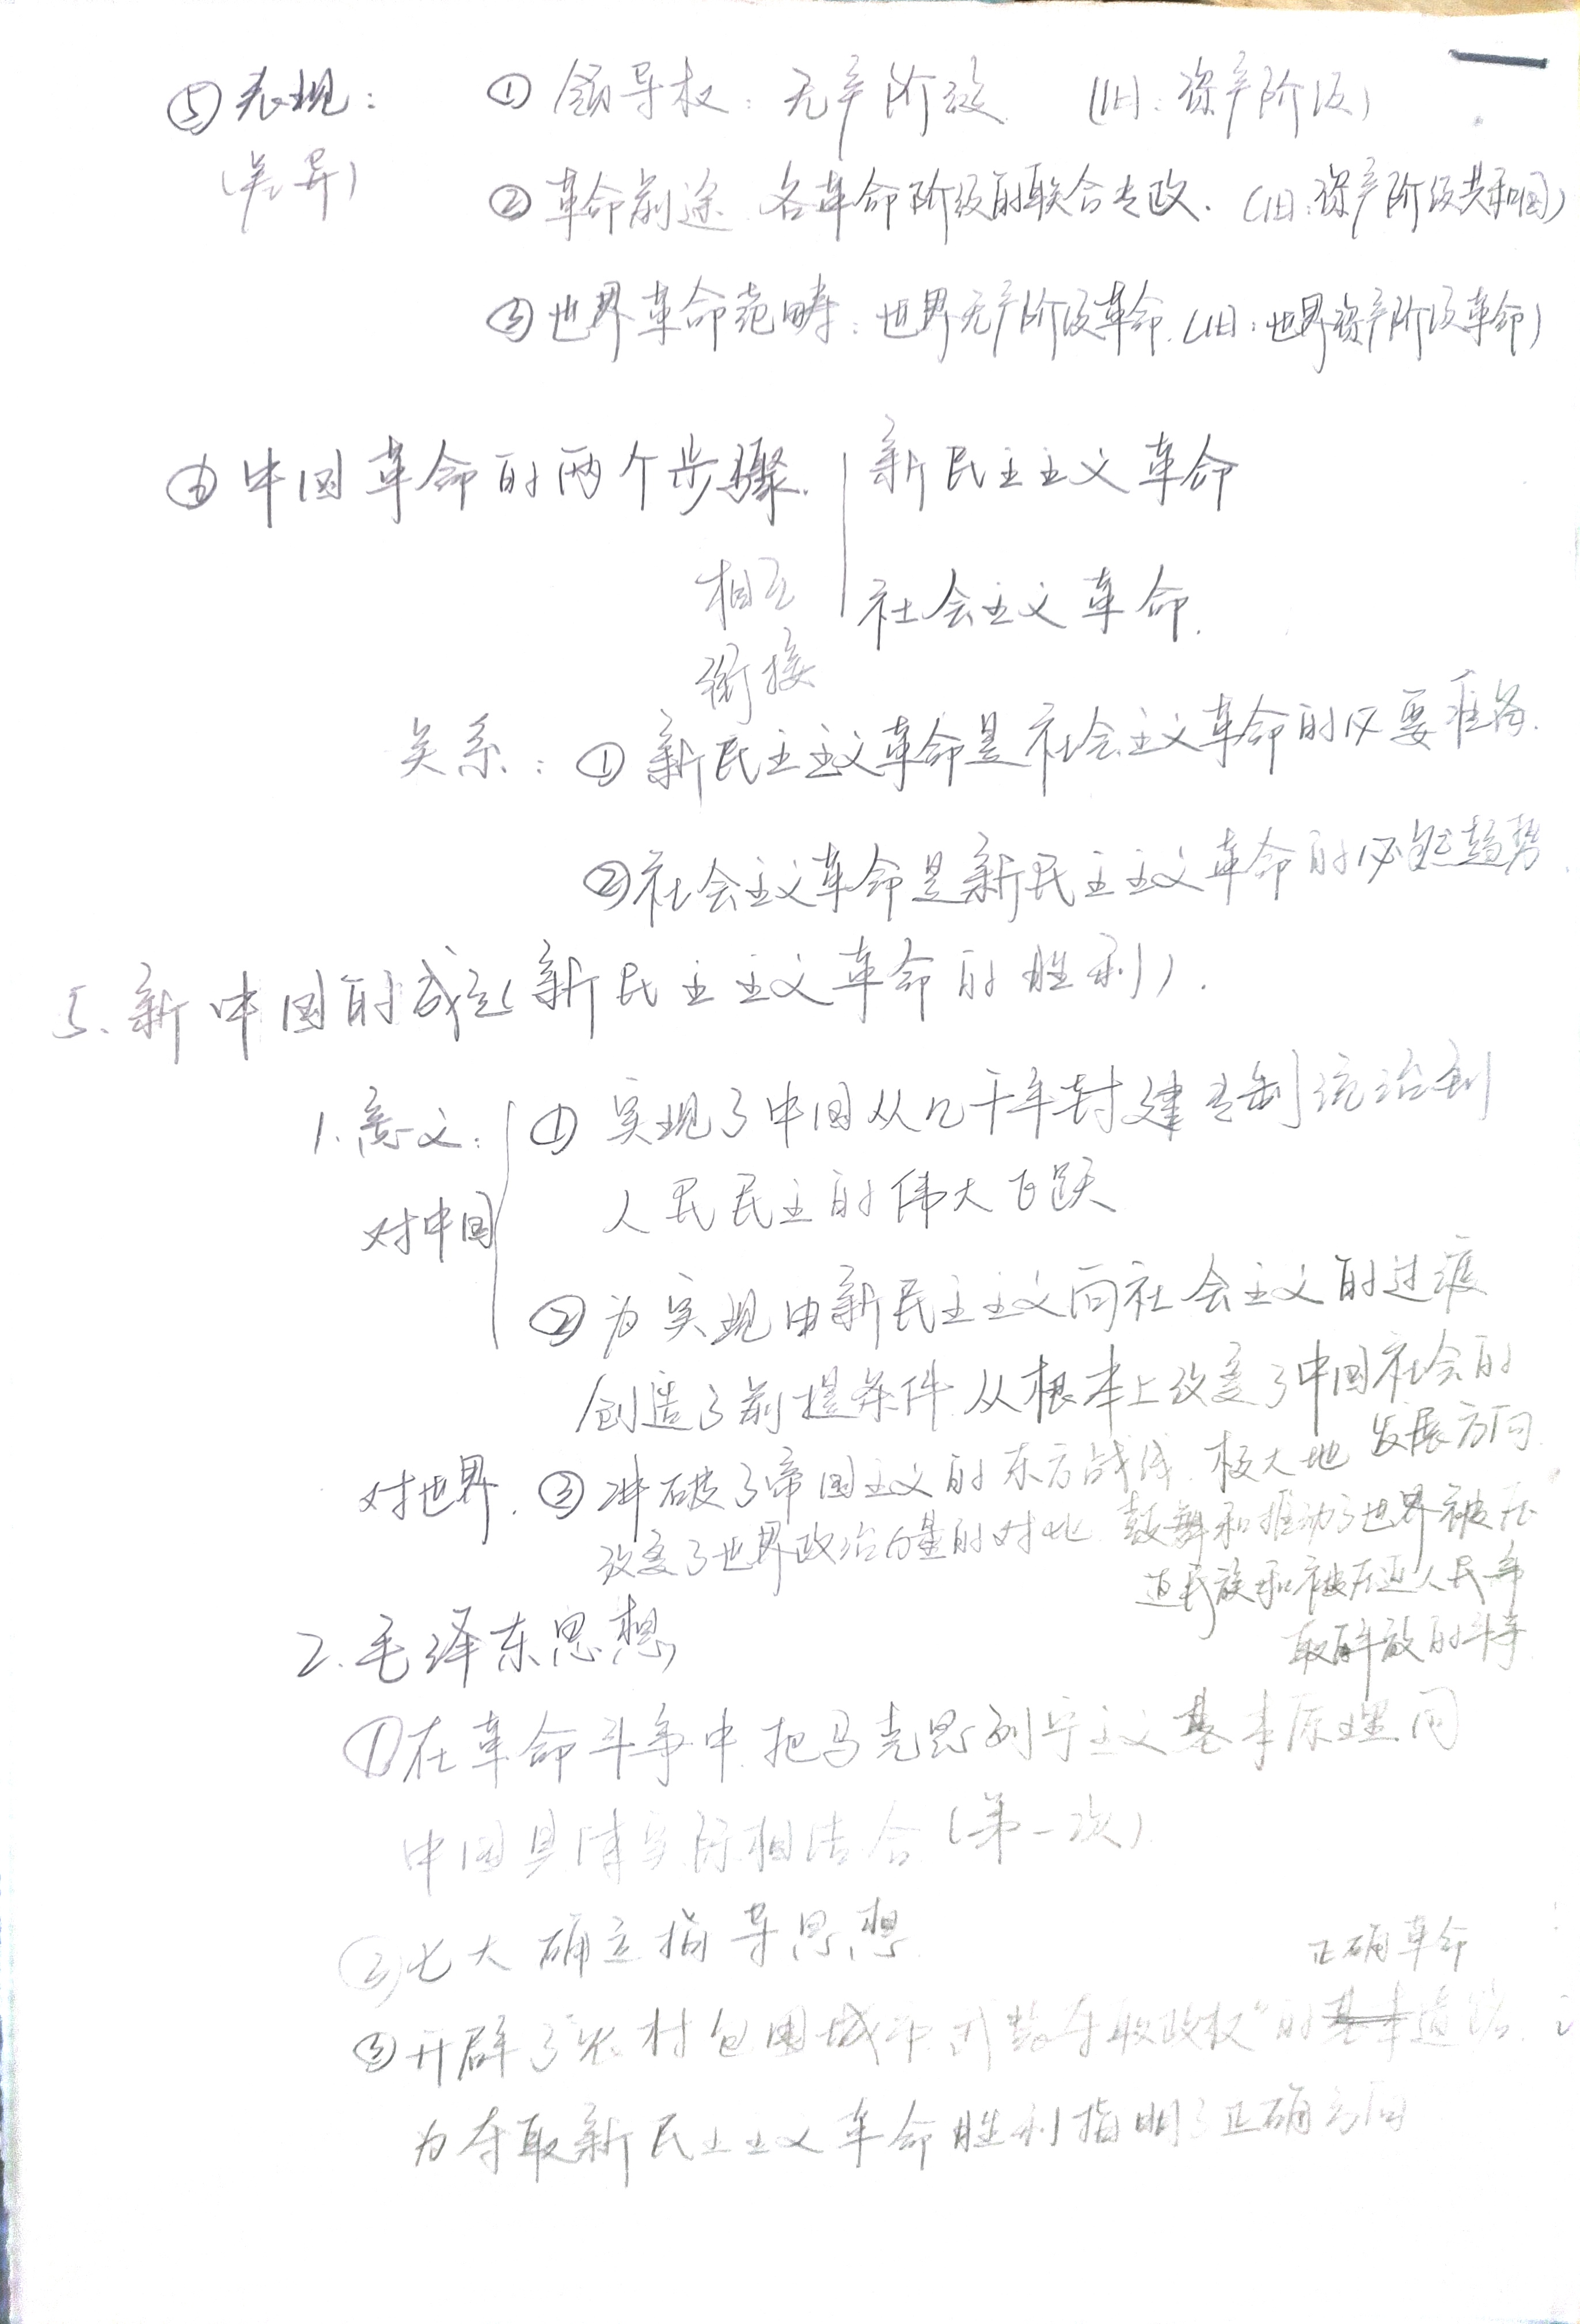 ⑤表现： ① 领导权：无产阶级 （旧：资产阶级）
（差异） ② 革命前途 各革命阶级的联合专政. （旧：资产阶级共和国）
③ 世界革命范畴：世界无产阶级革命.（旧：世界资产阶级革命）
五 中国革命的两个步骤. 新民主主义革命
相互 社会主义革命.
衔接
关系：① 新民主主义革命是社会主义革命的必要准备.
②社会主义革命是新民主主义革命的必然趋势.
5.新中国的成立（新民主主义革命的胜利）.
1.意义： ① 实现了中国从几千年封建专制统治到
对中国 人民民主的伟大飞跃
② 为实现由新民主主义向社会主义的过渡
创造了前提条件 从根本上改变了中国社会的
发展方向.
对世界. ③ 冲破了帝国主义的东方战线. 极大地
改变了世界政治力量的对比 鼓舞和推动了世界被压
迫民族和被压迫人民争
取解放的斗争
2.毛泽东思想
①在革命斗争中.把马克思列宁主义基本原理同
中国具体实际相结合（第一次）
②七大确立指导思想.
正确革命
③开辟了“农村包围城市 武装夺取政权”的基本道路.
为夺取新民主主义革命胜利指明了正确方向